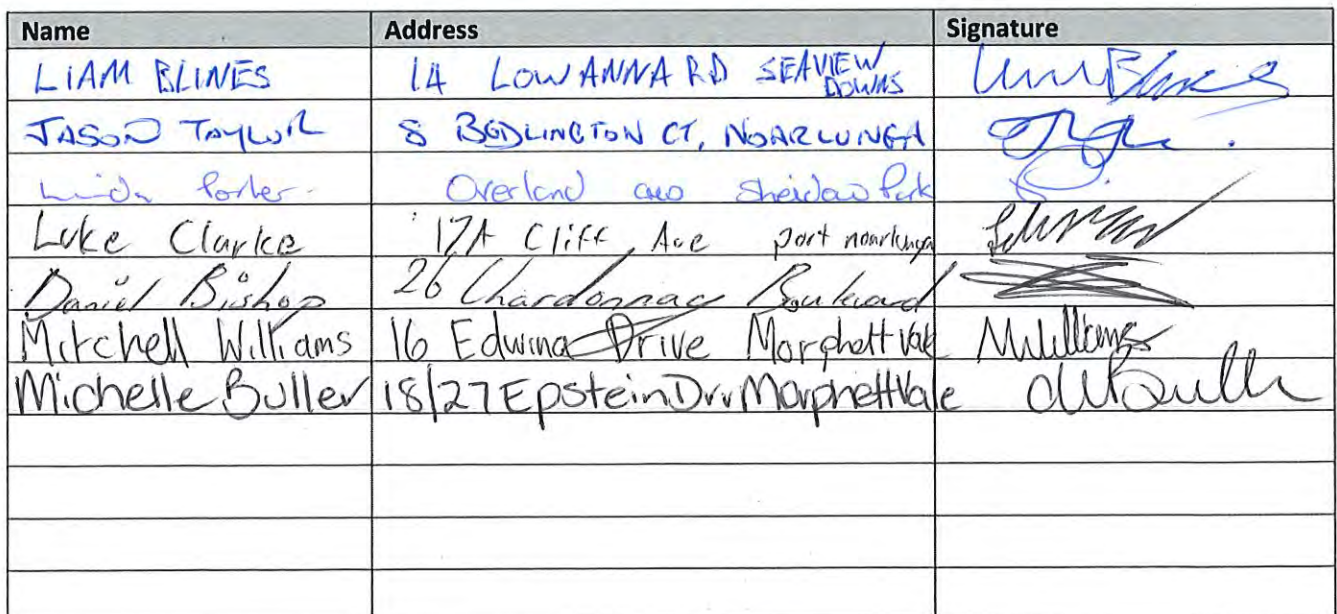 Name Address Signature
LIAM BLINES 14 LOWANNA RD SEAVIEW DOWNS
JASON TAYLOR 8 BEDLINGTON CT, NOARLUNGA
Linda Porter. Overland Sheidow Park
Luke Clarke 17A Cliff Ave port noarlunga
Daniel Bishop 26 Chardonnay Boulevard
Mitchell Williams 16 Edwina Drive Morphett Vale MWilliams
Michelle Buller 18/27 Epstein Drv Morphett Vale MBuller